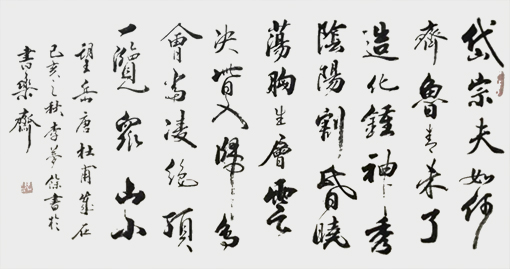 岱宗夫如何
齊魯青未了
造化鍾神秀
陰陽割昏曉
蕩胸生層雲
決眥入歸鳥
會當凌絕頂
一覽眾山小
望岳唐杜甫歲在
己亥之秋李
書於
書樂齋